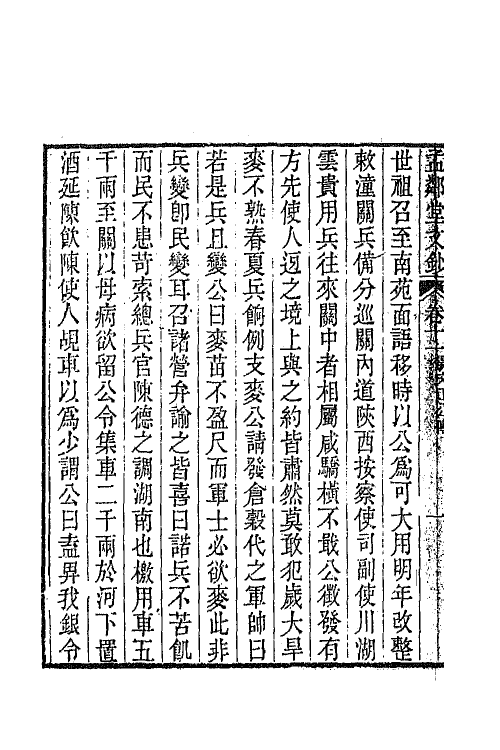 孟鄰堂文鈔 卷十一
世祖召至南苑面語移時以公爲可大用明年改整
敕潼關兵備分巡關內道陝西按察使司副使川湖
雲貴用兵往來關中者相屬咸驕橫不戢公徵發有
方先使人迓之境上與之約皆肅然莫敢犯歲大旱
麥不熟春夏兵餉例支麥公請發倉穀代之軍帥曰
若是兵且變公曰麥苗不盈尺而軍士必欲麥此非
兵變卽民變耳召諸營弁諭之皆喜曰諾兵不苦飢
而民不患苛索總兵官陳德之調湖南也檄用車五
千兩至關以母病欲留公令集車二千兩於河下置
酒延陳飲陳使人覘車以爲少謂公曰盍畀我銀令